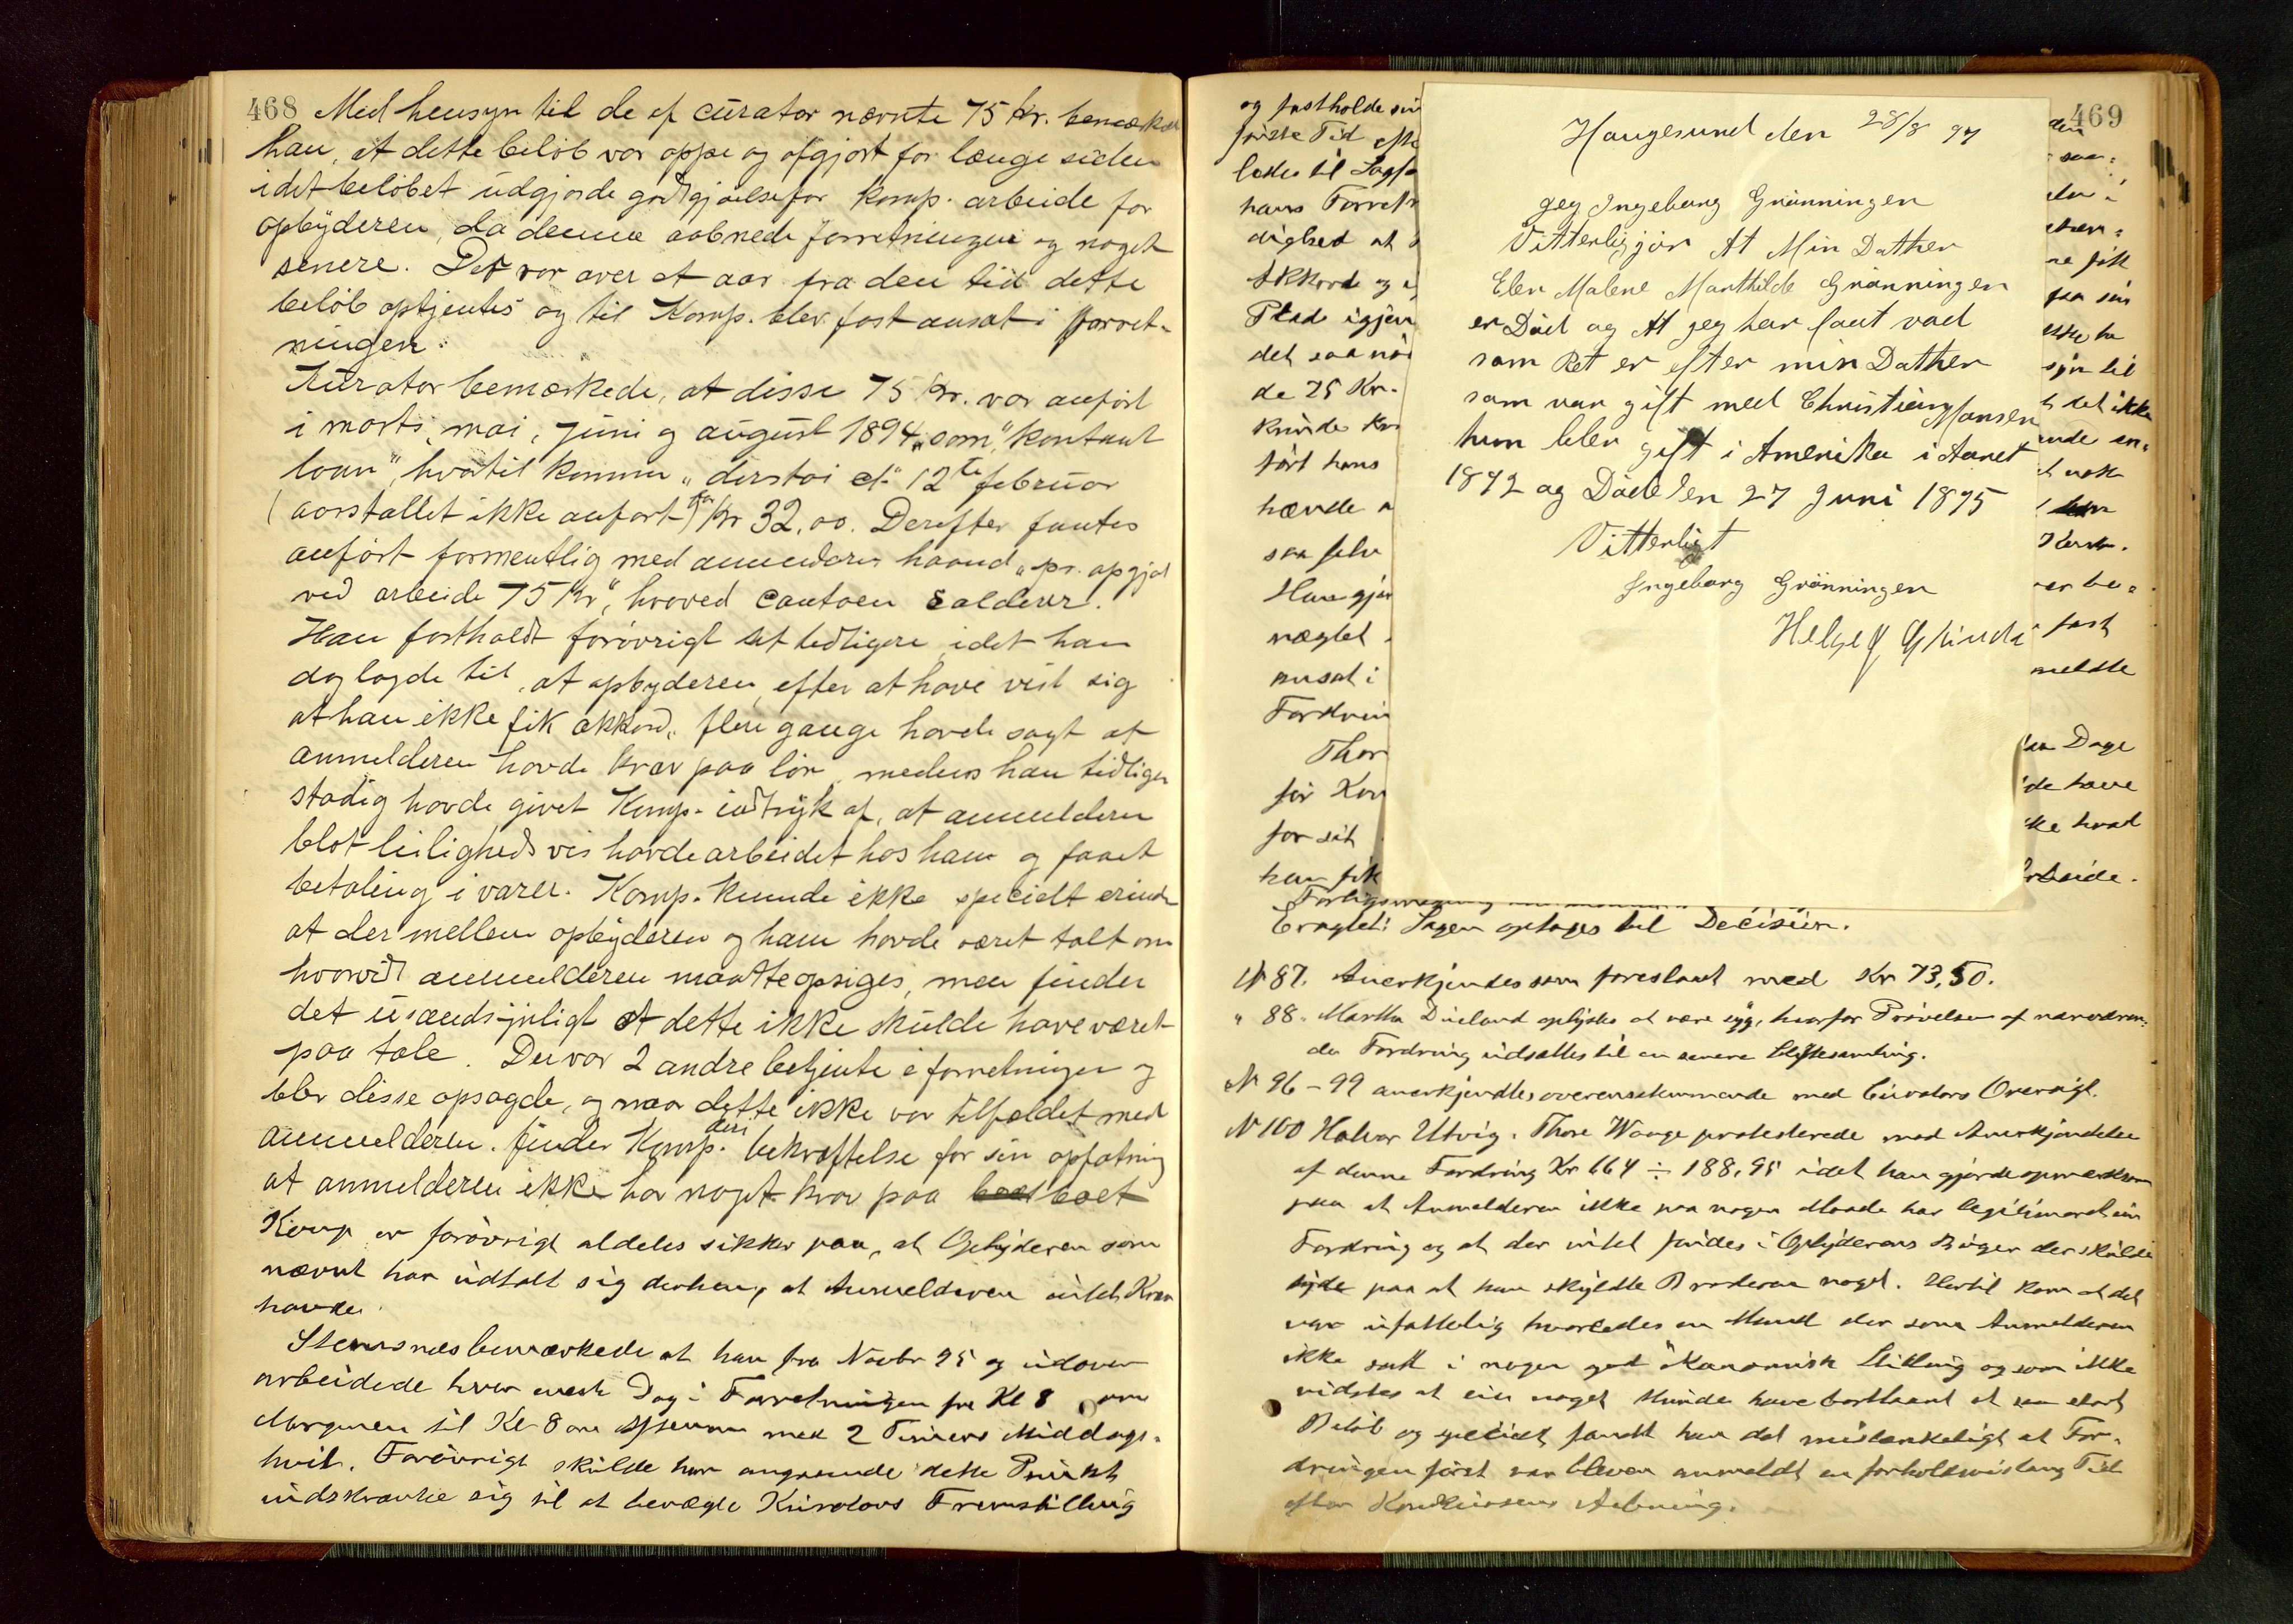 468 Med hensyn til de af curator nævnte 75 kr. bemærked
han, at dette beløb var oppe og afgjort for længe siden
idet beløbet udgjorde godtgjørelse for komp. arbeide for
opbyderen, da denne aabnede forretningen og noget
senere. Det var over et aar fra den tid dette
beløb optjentes og til Komp. blev fast ansat i forret-
ningen.
Kurator bemærkede, at disse 75 kr. var anført
i marts, mai, juni og august 1894 som "kontant
laan", hvortil kommer 12te februar
(aarstallet ikke anført) for Kr 32,00. Derefter fantes
anført formentlig med anmelderens haand "pr. opgjør
ved arbeide 75 Kr", hvorved contoen salderer.
Han fastholdt forøvrigt sit tidligere, idet han
dog lagde til, at opbyderen, efter at have vist sig
at han ikke fik akkord, flere gange havde sagt at
anmelderen havde krav paa løn, medens han tidligere
stadig havde givet Komp. indtryk af, at anmelderen
blot leilighedsvis havde arbeidet hos ham og faaet
betaling i varer. Komp. kunde ikke specielt erindre
at der mellem opbyderen og ham havde været talt om
hvorvidt anmelderen maatte opsiges, men finder
det usandsynligt at dette ikke skulde have været
paa tale. Der var 2 andre betjente i forretningen og
blev disse opsagde, og naar dette ikke var tilfældet med
anmelderen, finder Komp. deri bekræftelse for sin opfatning
at anmelderen ikke har noget krav paa boet
Komp er forøvrigt aldeles sikker paa, at Opbyderen som
nævnt har udtalt sig derhen, at Anmelderen intet Krav
havde.
Stensnæs bemærkede at han fra Novbr 95 og udover
arbeidede hver eneste Dag i Forretningen fra Kl 8 om
Morgenen til Kl 8 om Aftenen med 2 Timers Middags-
hvil. Forøvrigt skulde han angaaende dette Punkt
indskrænke sig til at benægte Kurators Fremstilling
469
og fastholde sin
første Tid efte
ledes til Sagfø
hans Forretn
dighed at
Akkord og
Plads igjen
det saa nø
de 25 Kr.
kunde
ført hans
hævde
saa selv
Han gjør
nægtet
ansat i
Fordrin
Thor
for Kon
for sit
han fik
Haugesund den 28/8 97
jeg Ingeborg Grönningen
Vitterligjör At Min Datther
Elen Malene Marthilde Grönningen
er Död og At jeg har faat vad
som Ret er efter min Datther
som var gift med Christian Hansen
hun blev gift i Amerika i Aaret
1892 og Döde den 27 Juni 1895
Vitterligt
Ingeborg Grönningen
den
saa
fik
paa sin
ikke ha
syn til
det ikke
nok
fast
meldte
Dage
have
ke hvad
rbeide.
Eragtet: Sagen optages til Decision.
N 87. Anerkjendes som foreslaaet med Kr 73,50.
" 88. Martha Dueland oplystes at være syg, hvorfor Prøvelsen af nærværen-
de Fordring udsattes til en senere Skiftesamling.
N 96-99 anerkjendtes overensstemmende med Curators Oversigt.
N 100 Halvor Utvig. Thore Waage protesterede mod Anerkjendelse
af denne Fordring Kr 664 ÷ 188,95 idet han gjorde opmærksom
paa at Anmelderen ikke paa nogen Maade har legitimeret sin
Fordring og at der intet findes i Opbyderens Bøger der skulde
tyde paa at han skyldte Broderen noget. Hertil kom at det
var ufattelig hvorledes en Mand der som Anmelderen
ikke sad i nogen god økonomisk Stilling og som ikke
vidstes at eie noget kunde have bortlaant et saa stort
Beløb og specielt fandt han det mistænkeligt at For-
dringen først var bleven anmeldt en forholdsvis lang Tid
efter Konkursens Aabning.